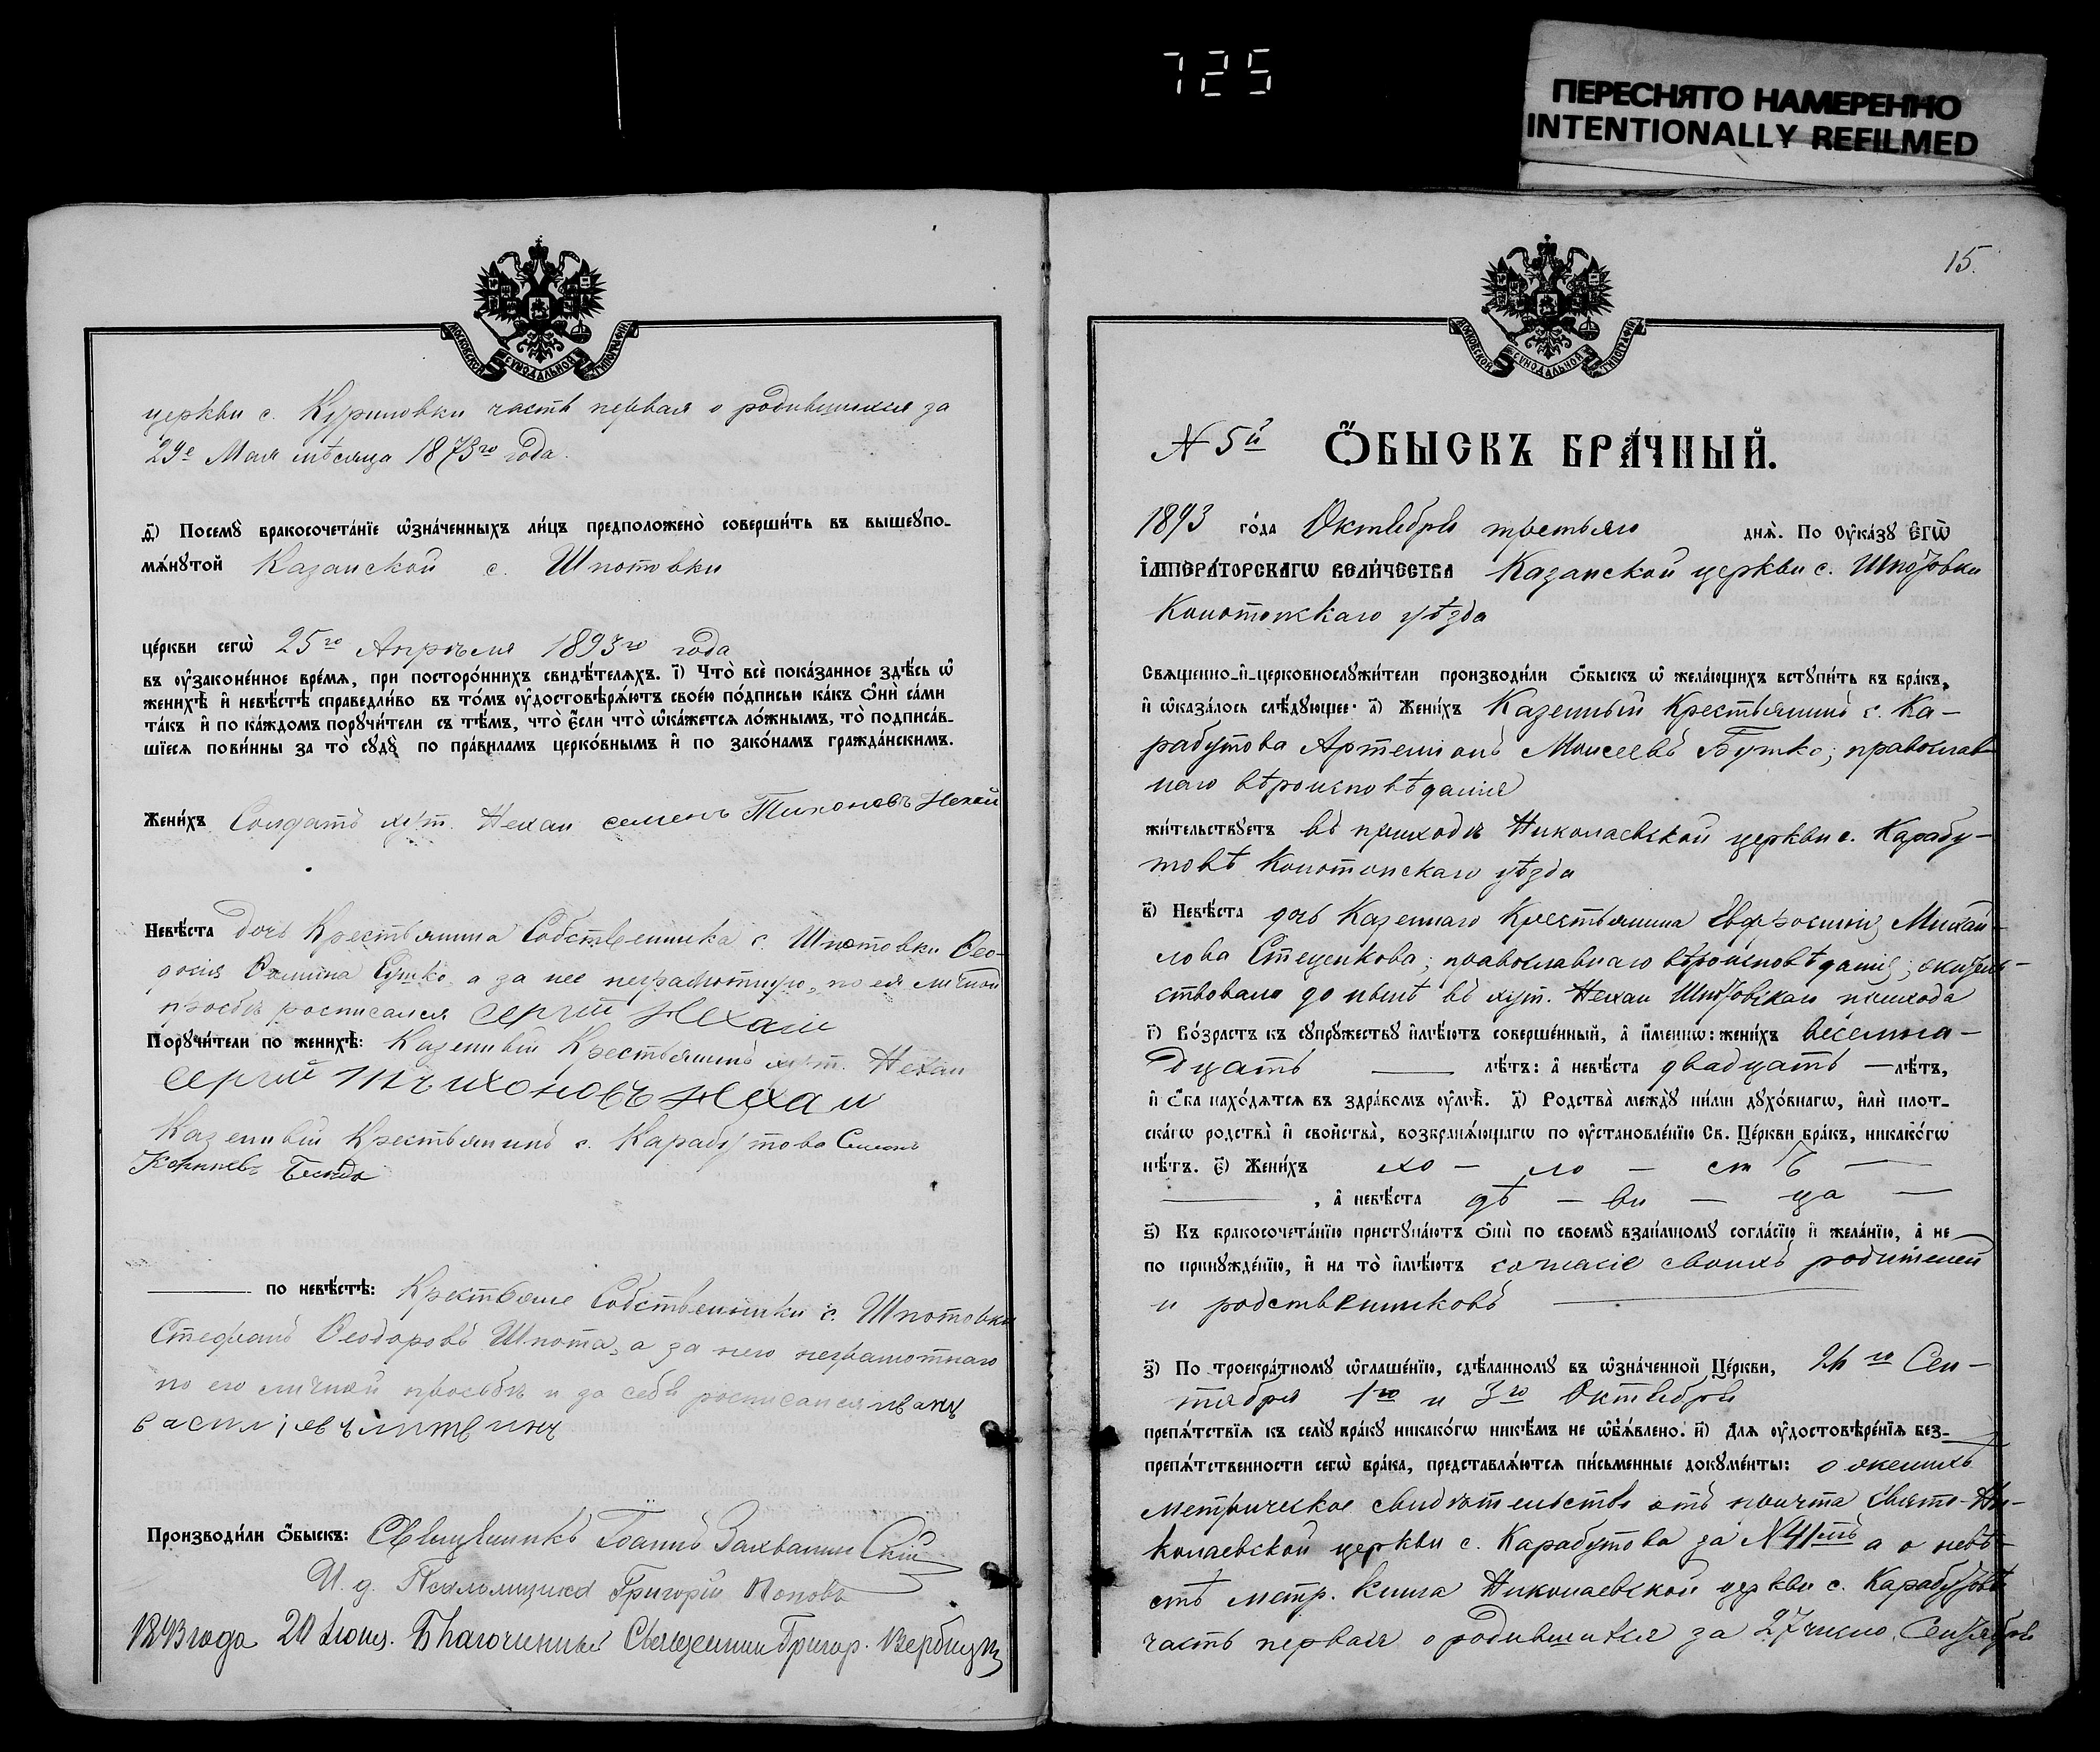 725
ПЕРЕСНЯТО НАМЕРЕННО
INTENTIONALLY REFILMED
МОСКОВСКОЙ СѴНОДАЛЬНОЙ ТИПОГРАФІИ
церкви с. Куриловки часть первая о родившихся за
29е Мая мѣсяца 1873го года.
д҃і) Посемꙋ̀ бракосочета́нїе ѡ҆зна́ченныхъ ли́цъ предположено̀ соверши́ть въ вышеꙋпо-
мѧ́нꙋтой Казанской с. Шпотовки
це́ркви сегѡ̀ 25го Апрѣля 1893го года
въ ᲂу҆зако́ненное вре́мѧ, при посторо́ннихъ свидѣ́телѧхъ. і҃) Что̀ всѐ пока́занное здѣ́сь ѡ҆
женихѣ̀ и҆ невѣ́стѣ справедли́во въ то́мъ ᲂу҆достовѣрѧ́ютъ свое́ю по́дписью ка́къ ѻ҆нѝ са́ми
та́къ и҆ по ка́ждомъ порꙋчи́тели съ тѣ́мъ, что̀ є҆́сли что̀ ѡ҆ка́жется ло́жнымъ, то̀ подписа́в-
шїесѧ пови́нны за то̀ сꙋдꙋ̀ по пра́виламъ церко́внымъ и҆ по зако́намъ гражда́нскимъ.
Жени́хъ Солдатъ хут. Нехаи семенъ Тихоновъ Нехай
Невѣ́ста дочь Крестьянина Собственника с. Шпотовки Ѳео-
досія Ѳомина Сушко, а за нее неграмотную, по ея личной
просьбѣ росписался сергій Нехаій
Порꙋчи́тели по женихѣ̀: Казенный Крестьянинъ хут. Нехаи
сергій тихоновъ Нехаи
Казенный Крестьянинъ с. Карабутова Семенъ
по невѣ́стѣ: Крестьяне Собственники с. Шпотовки
Стефанъ Ѳеодоровъ Шпота, а за него неграмотнаго
по его личной просьбѣ и за себя росписался иванъ
василіевъ литвинъ
Производи́ли ѻ҆́быскъ: Священникъ Іоаннъ
И. д. Псаломщика Григорій Поповъ
1893 года 20 Благочинный Священникъ Григор. Вербицкій
15.
МОСКОВСКОЙ СѴНОДАЛЬНОЙ ТИПОГРАФІИ
N 5й Ѻ҆́БЫСКЪ БРА́ЧНЫЙ.
1893 го́да Октября третьяго днѧ̀. По ᲂу҆ка́зꙋ Є҆ГѠ̀
І҆МПЕРА́ТОРСКАГѠ ВЕЛИ́ЧЕСТВА Казанской церкви с. Шпотовки
Конотопскаго уѣзда
Свѧщенно-и҆-церковнослꙋжи́тели производи́ли ѻ҆́быскъ ѡ҆ жела́ющихъ встꙋпи́ть въ бра́къ,
и҆ ѡ҆каза́лось слѣ́дꙋющее: а҃) Жени́хъ Казенный Крестьянинъ с. Ка-
рабутова Артемонъ Моисеевъ Бутко; православ-
наго вѣроисповѣданія
жи́тельствꙋетъ въ приходѣ Николаевской церкви с. Карабу-
товѣ Конотопскаго уѣзда
в҃) Невѣ́ста дочь Казеннаго Крестьянина Евфросинія Михай-
лова Стеценкова; православнаго вѣроисповѣданія; жител-
ствовала до нынѣ въ хут. Нехаи Шпотовскаго прихода
г҃) Во́зрастъ къ сꙋпрꙋ́жествꙋ и҆мѣ́ютъ соверше́нный, а҆ и҆́меннѡ: жени́хъ восемна-
дцать лѣ́тъ: а҆ невѣ́ста двадцать лѣ́тъ,
и҆ ѻ҆́ба нахо́дѧтсѧ въ здра́вомъ ᲂу҆мѣ̀. д҃) Родства̀ междꙋ̀ ни́ми дꙋхо́внагѡ, и҆лѝ плот-
ска́гѡ родства̀ и҆ сво́йства̀, возбранѧ́ющагѡ по ᲂу҆становле́нїю Св. Це́ркви бра́къ, никако́гѡ
нѣ́тъ. є҃) Жени́хъ хо - ло - стъ
, а҆ невѣ́ста дѣ - ви - ца
ѕ҃) Къ бракосочета́нїю пристꙋпа́ютъ ѻ҆нѝ по своемꙋ̀ взаи́мномꙋ согла́сїю и҆ жела́нїю, а҆ не
по принꙋжде́нїю, и҆ на то̀ и҆мѣ́ютъ согласіе своихъ родителей
и родственниковъ
з҃) По троекра́тномꙋ ѡ҆глаше́нїю, сдѣ́ланномꙋ въ ѡ҆зна́ченной Це́ркви, 26го Сен-
тября 1го и 3го Октября
препѧ́тствїѧ къ семꙋ̀ бра́кꙋ никако́гѡ никѣ́мъ не ѡ҆б̾ѧ́влено. и҃) Для ᲂу҆достовѣре́нїѧ без-
препѧ́тственности сегѡ̀ бра́ка, представлѧ́ютсѧ пи́сьменные докꙋме́нты: о женихѣ
метрическое свидѣтельство отъ причта Свято-Ни-
колаевской церкви с. Карабутова за N 41мъ а о невѣ-
стѣ метр. книга Николаевской церкви с. Карабутова
часть первая о родившихся за 27 число Сентября